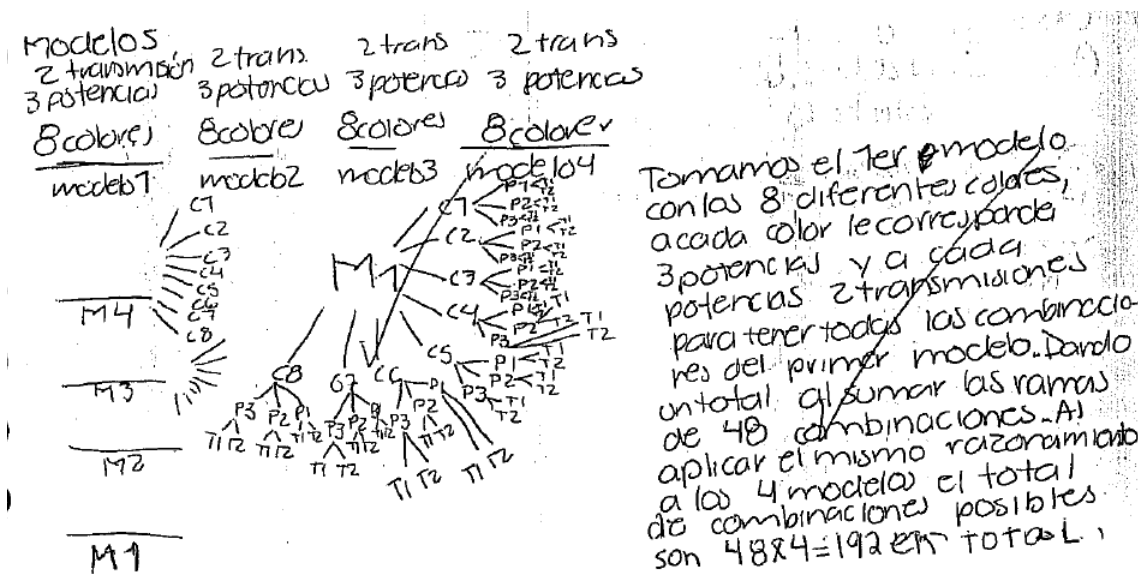 Modelos
2 transmisión 2 trans. 2 trans 2 trans
3 potencias 3 potencias 3 potencias 3 potencias
8 colores 8 colores 8 colores 8 colores
modelo1 modelo2 modelo3 modelo4
C1
C2
C3
C4
C5
C6
C7
C8
M4
M3
M2
M1
M1
C1
P1 T1 T2
P2 T1 T2
P3 T1 T2
C2
P1 T1 T2
P2 T1 T2
P3 T1 T2
C3
P1 T1 T2
P2 T1 T2
P3 T1 T2
C4
P1 T1 T2
P2 T1 T2
P3 T1 T2
C5
P1 T1 T2
P2 T1 T2
P3 T1 T2
C8 C7 C6
P3 P2 P1 P3 P2 P1 P3 P2 P1
T1 T2 T1 T2 T1 T2 T1 T2 T1 T2 T1 T2 T1 T2 T1 T2 T1 T2
Tomamos el 1er modelo
con los 8 diferentes colores,
a cada color le corresponde
3 potencias y a cada
potencias 2 transmisiones
para tener todas las combinacio-
nes del primer modelo. Dando
un total al sumar las ramas
de 48 combinaciones. Al
aplicar el mismo razonamiento
a los 4 modelos el total
de combinaciones posibles
son 48x4=192 en total.